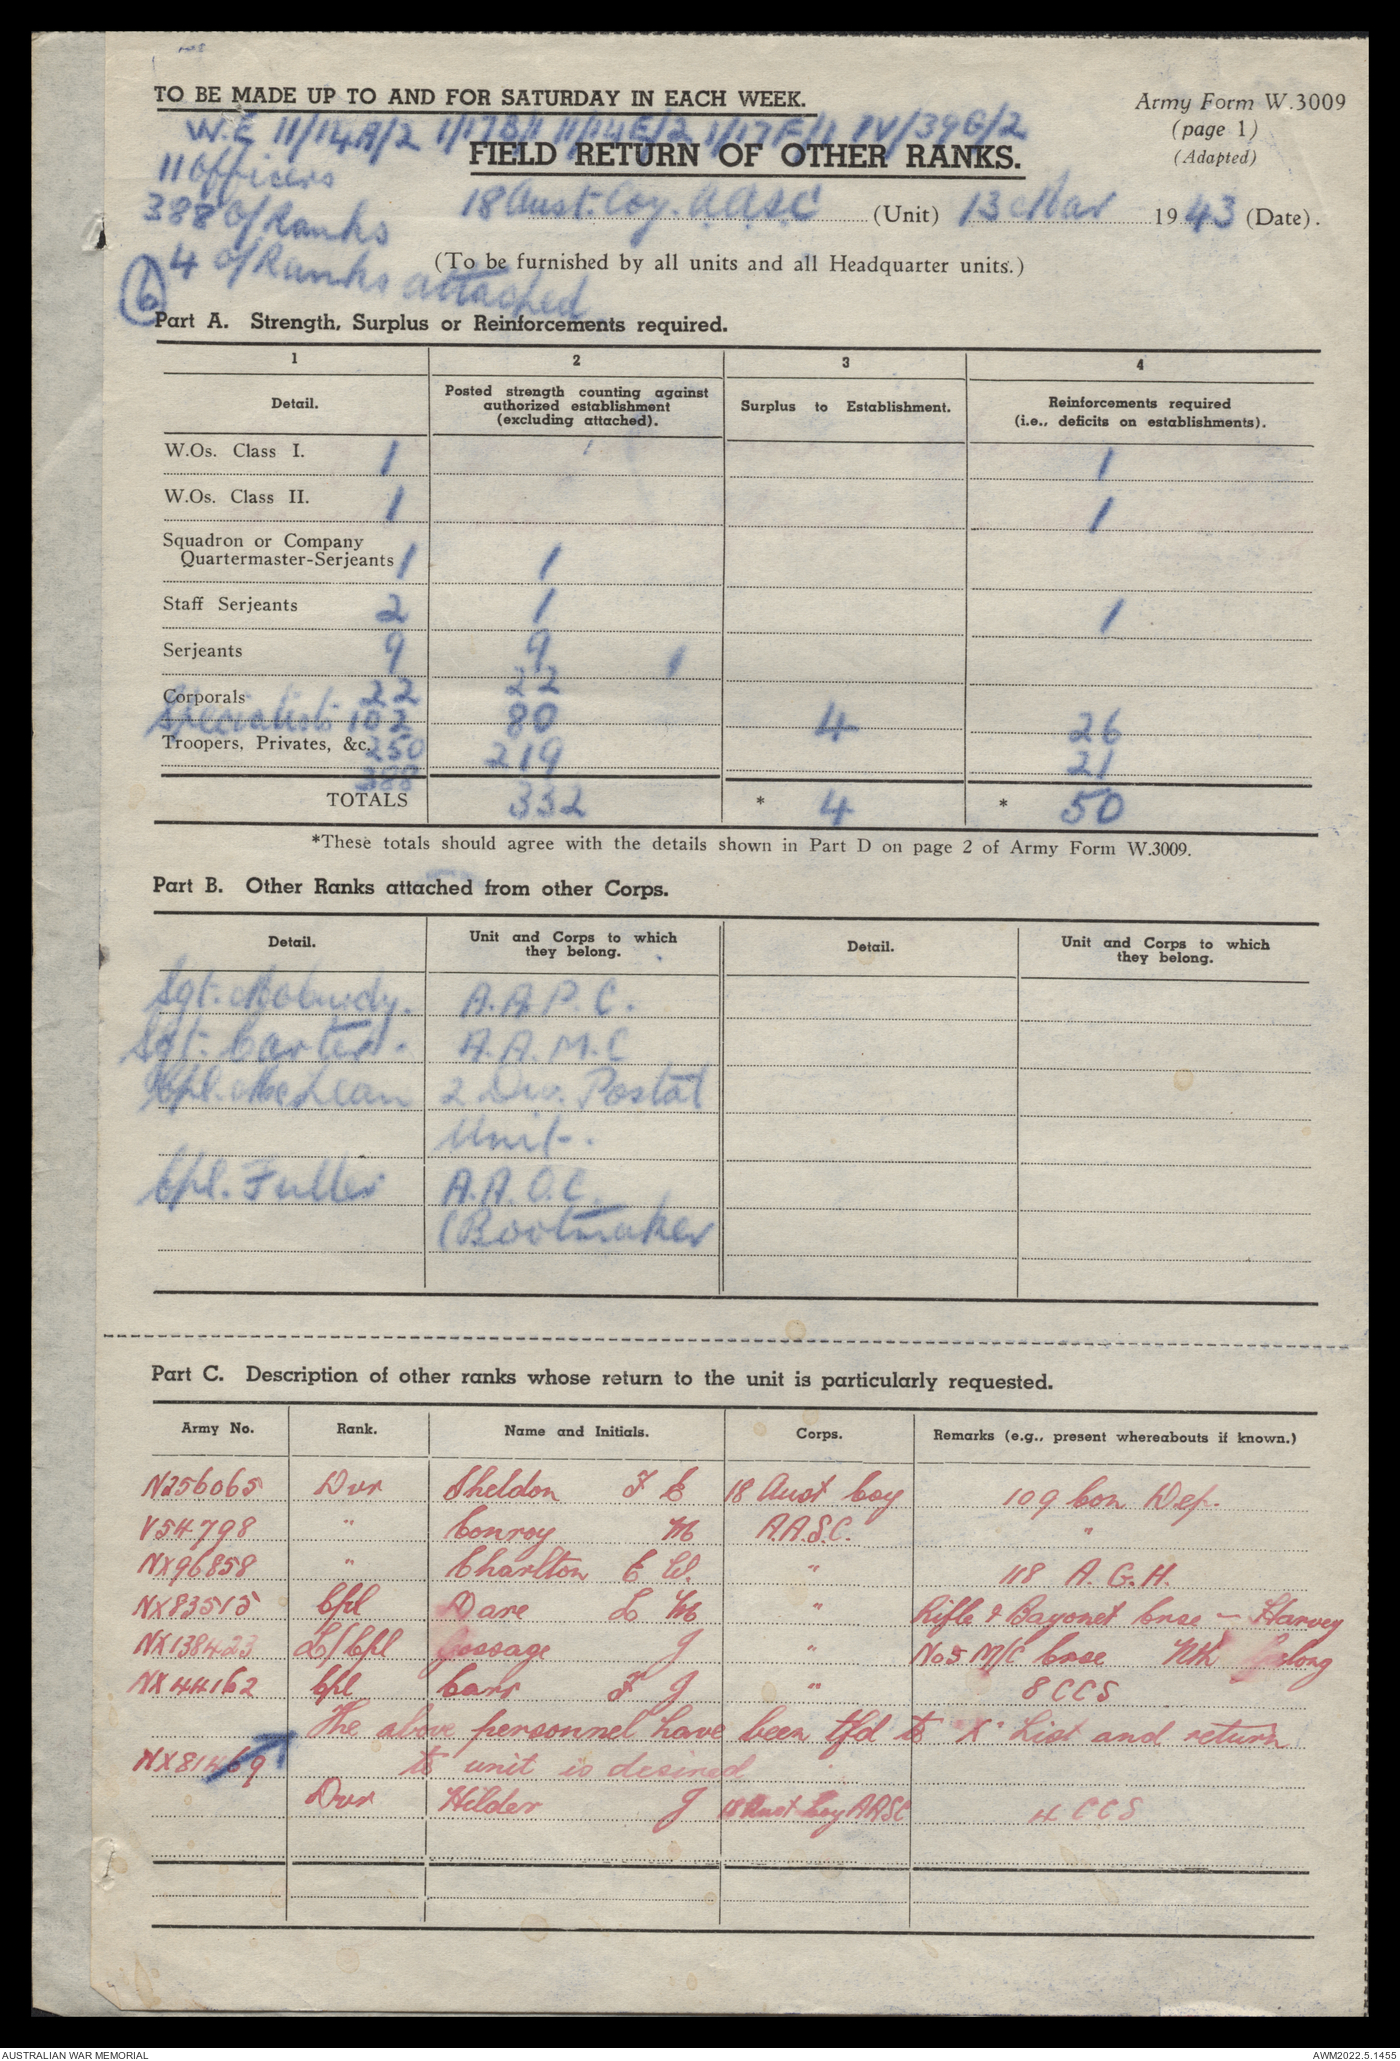 TO BE MADE UP TO AND FOR SATURDAY IN EACH WEEK.
Army Form W.3009
(page 1)
(Adapted)
W.E 11/14A/2 1/17B/1 11/14E/2 1/17F/1 IV/39G/2
FIELD RETURN OF OTHER RANKS.
11 Officers
388 O/Ranks
4 O/Ranks attached
6
18 Aust. Coy. A.A.S.C (Unit) 13 Mar 1943 (Date).
(To be furnished by all units and all Headquarter units.)
Part A. Strength, Surplus or Reinforcements required.
1 2 3 4
Detail. Posted strength counting against authorized establishment (excluding attached). Surplus to Establishment. Reinforcements required (i.e., deficits on establishments).
W.Os. Class I. 1 1
W.Os. Class II. 1 1
Squadron or Company
Quartermaster-Serjeants 1 1
Staff Serjeants 2 1 1
Serjeants 9 9 1
Corporals 22 22
Specialists 102 80 4 26
Troopers, Privates, &c. 250 219 21
388
TOTALS 332 * 4 * 50
*These totals should agree with the details shown in Part D on page 2 of Army Form W.3009.
Part B. Other Ranks attached from other Corps.
Detail. Unit and Corps to which they belong. Detail. Unit and Corps to which they belong.
Sgt. A.A.P.C.
Sgt. Carter. A.A.M.C
Cpl. McLean 2 Div. Postal
Unit.
Cpl. Fuller A.A.O.C.
(Bootmaker
Part C. Description of other ranks whose return to the unit is particularly requested.
Army No. Rank. Name and Initials. Corps. Remarks (e.g., present whereabouts if known.)
N256065 Dvr Sheldon F E 18 Aust Coy 109 Con Dep.
V54798 " Conroy M A.A.S.C. "
NX96858 " Charlton E W. " 118 A.G.H.
NX83515 Cpl Dare L M " Rifle & Bayonet Crse - Harvey
NX138423 L/Cpl Gossage J " No 5 M/C Crse Nth Gelong
NX44162 Cpl Carr F J " 8 CCS
The above personnel have been tfd to X List and return
NX81469 to unit is desired
Dvr Hilder J 18 Aust Coy AASC 4 CCS
AUSTRALIAN WAR MEMORIAL
AWM2022.5.1455